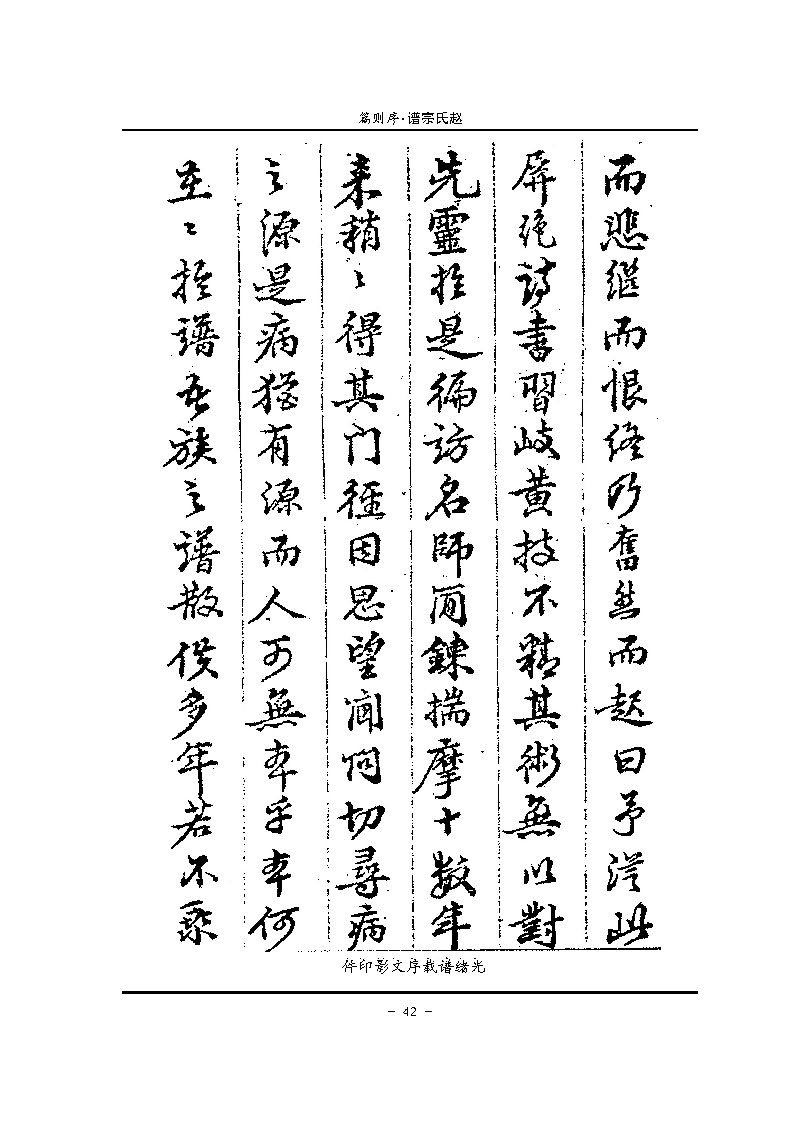 赵氏宗谱·序则篇
而悲继而恨终乃奮然而起曰予從此
屏绝詩書習岐黄技不精其術無以對
先靈於是徧訪名師简鍊揣摩十數年
来稍〻得其门徑因思望闻问切尋病
之源是病猶有源而人可無本乎本何
在〻於譜吾族之譜散佚多年若不聚
光绪谱载序文影印件
- 42 -